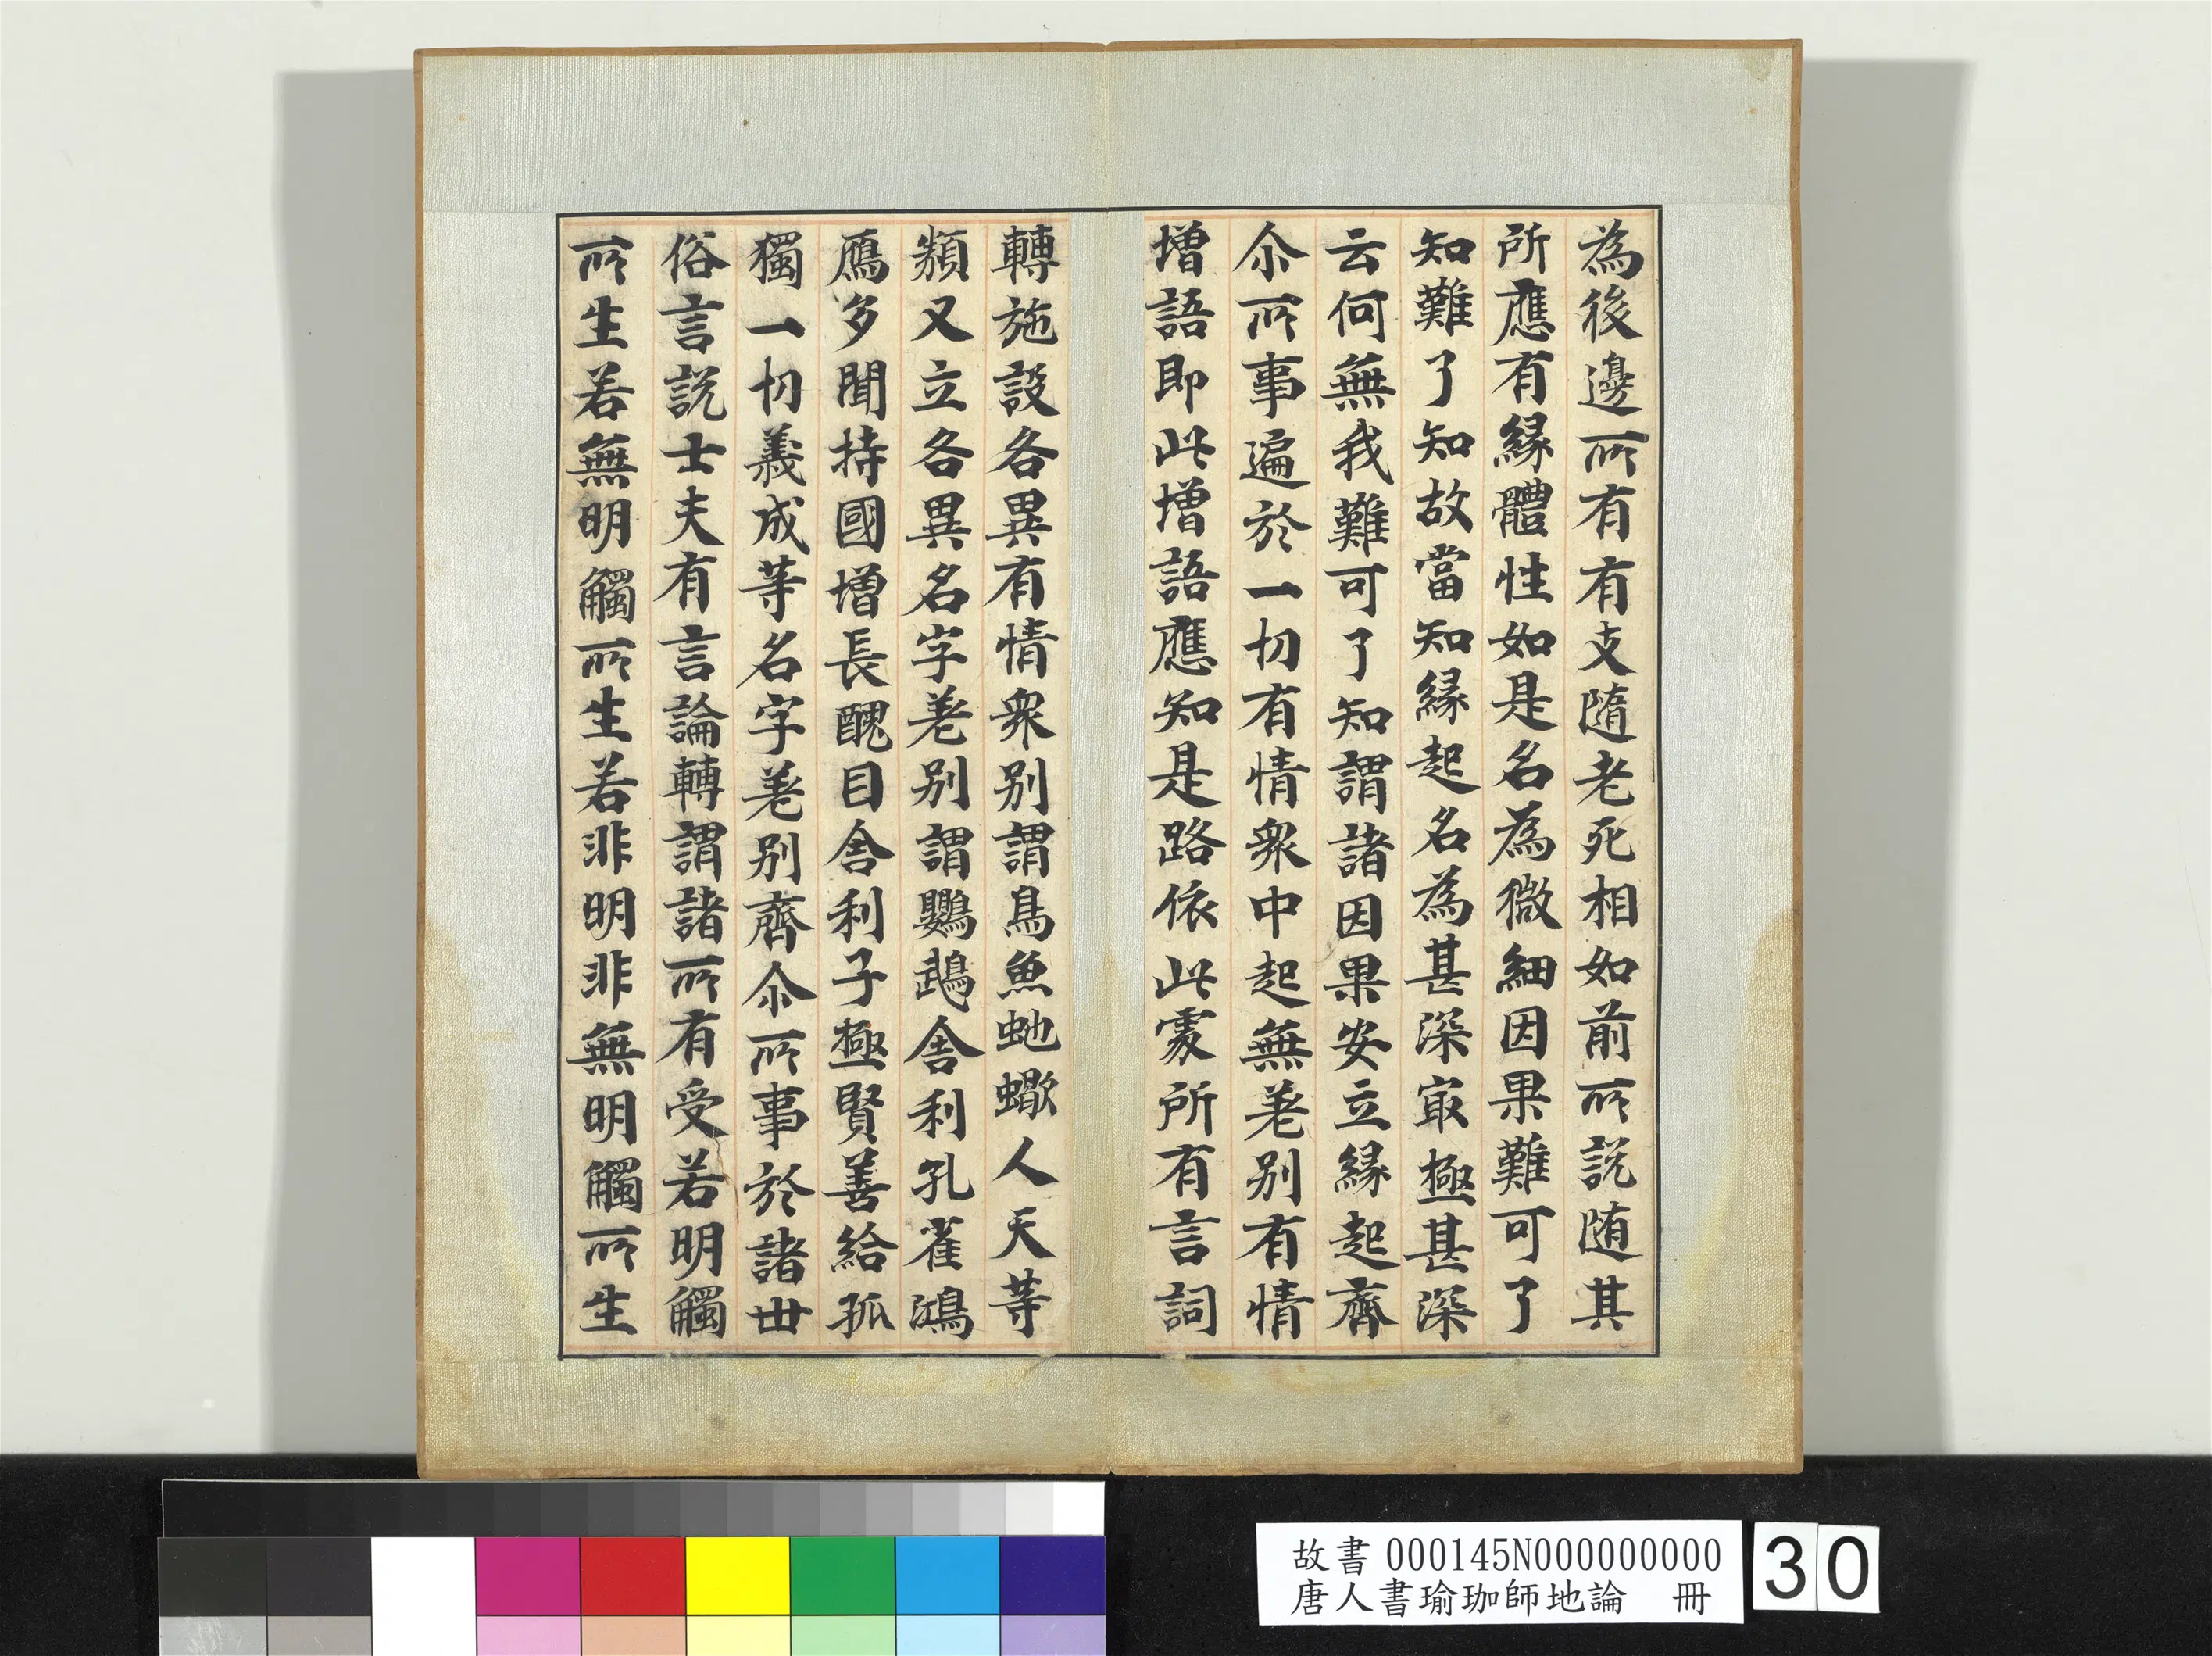 為後邊所有有支隨老死相如前所說随其
所應有緣體性如是名為微細因果難可了
知難了知故當知緣起名為甚深㝡極甚深
云何無我難可了知謂諸因果安立緣起齊
尒所事遍於一切有情衆中起無差别有情
增語即此增語應知是路依此處所有言詞
轉施設各異有情衆别謂鳥魚虵蠍人天等
類又立各異名字差别謂鸚鵡舍利孔雀鴻
鴈多聞持國增長醜目舍利子極賢善給孤
獨一切義成等名字差别齊尒所事於諸世
俗言說士夫有言論轉謂諸所有受若明觸
所生若無明觸所生若非明非無明觸所生
故書 000145N000000000
唐人書瑜珈師地論 冊
30